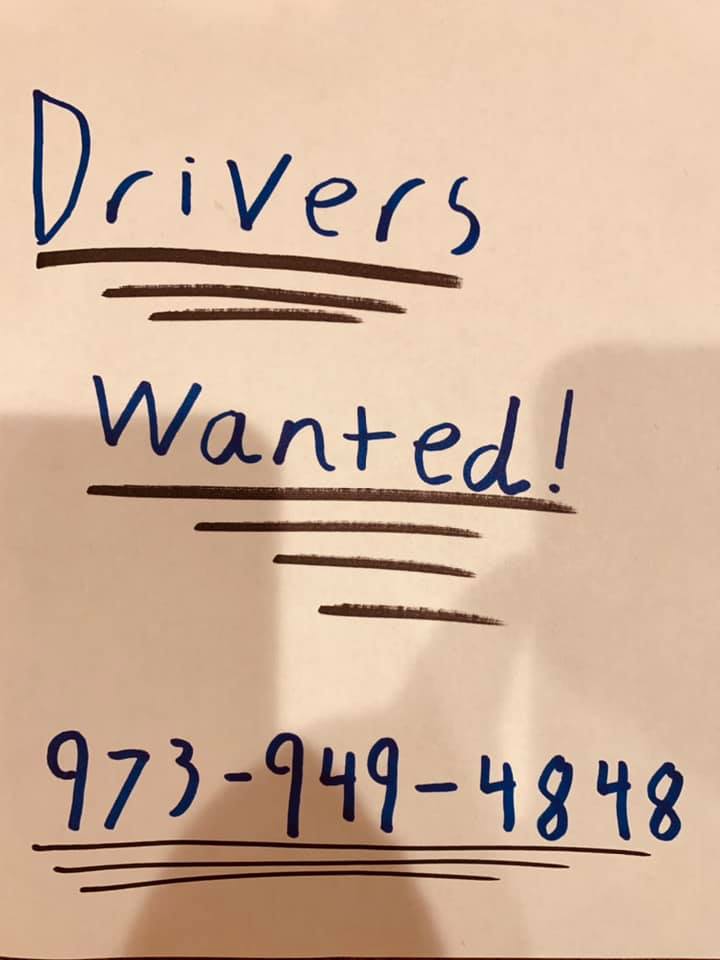 Drivers
Wanted!
973-949-4848